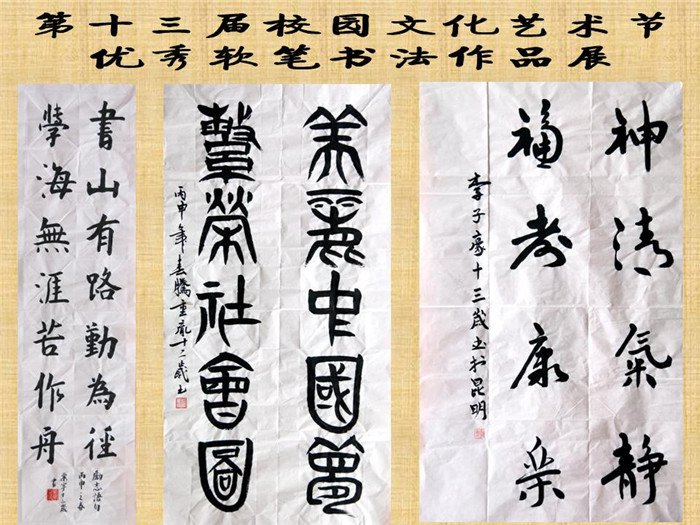 第十三届校园文化艺术节
优秀软笔书法作品展
書山有路勤為徑
學海無涯苦作舟
丙申之春
美麗中國夢
繁榮社會圖
神清氣静
福寿康樂
李子豪十三歲书於昆明